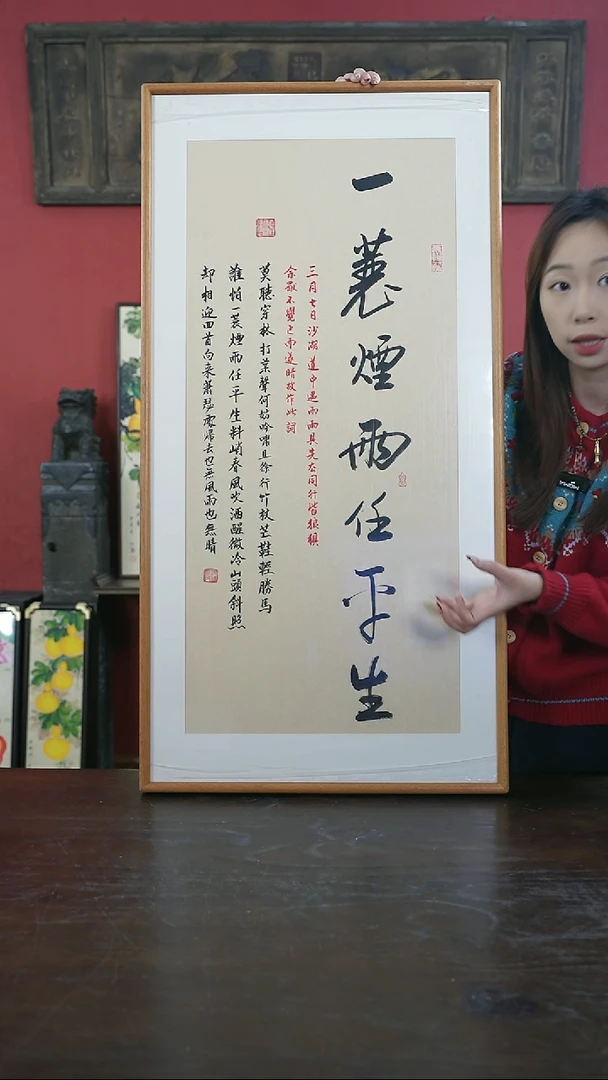 一蓑煙雨任平生
三月七日沙湖道中遇雨雨具先去同行皆狼狽
余獨不覺已而遂晴故作此詞
莫聽穿林打葉聲何妨吟嘯且徐行竹杖芒鞋輕勝馬
誰怕一蓑煙雨任平生料峭春風吹酒醒微冷山頭斜照
却相迎回首向來蕭瑟處歸去也無風雨也無晴